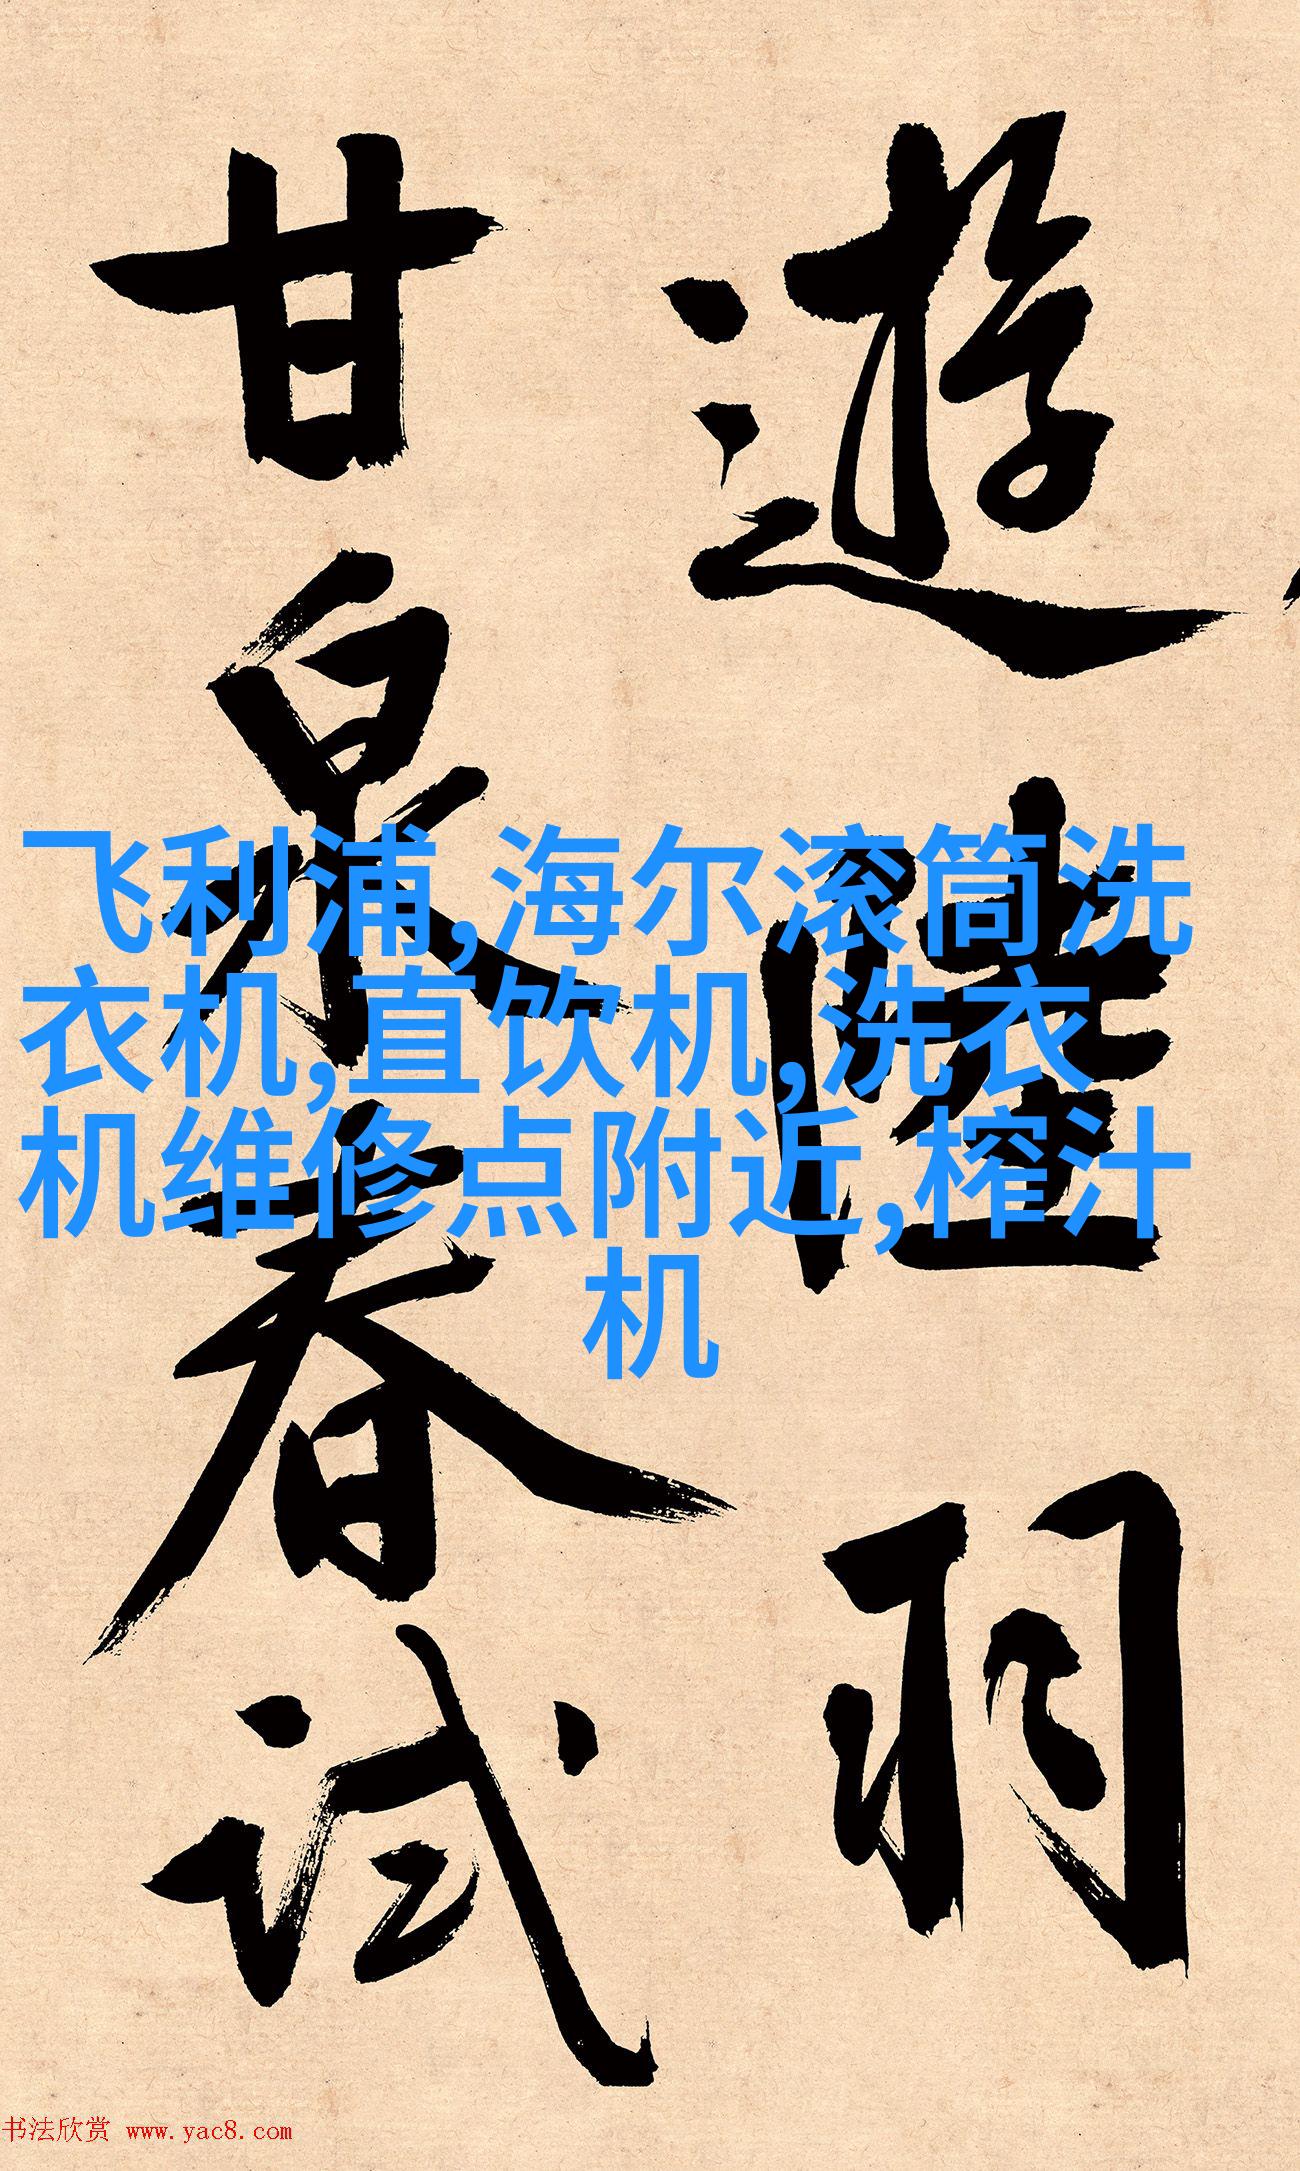 遊陸羽
甘泉春試
飞利浦,海尔滚筒洗
衣机,直饮机,洗衣
机维修点附近,榨汁
机
书法欣赏 www.yac8.com